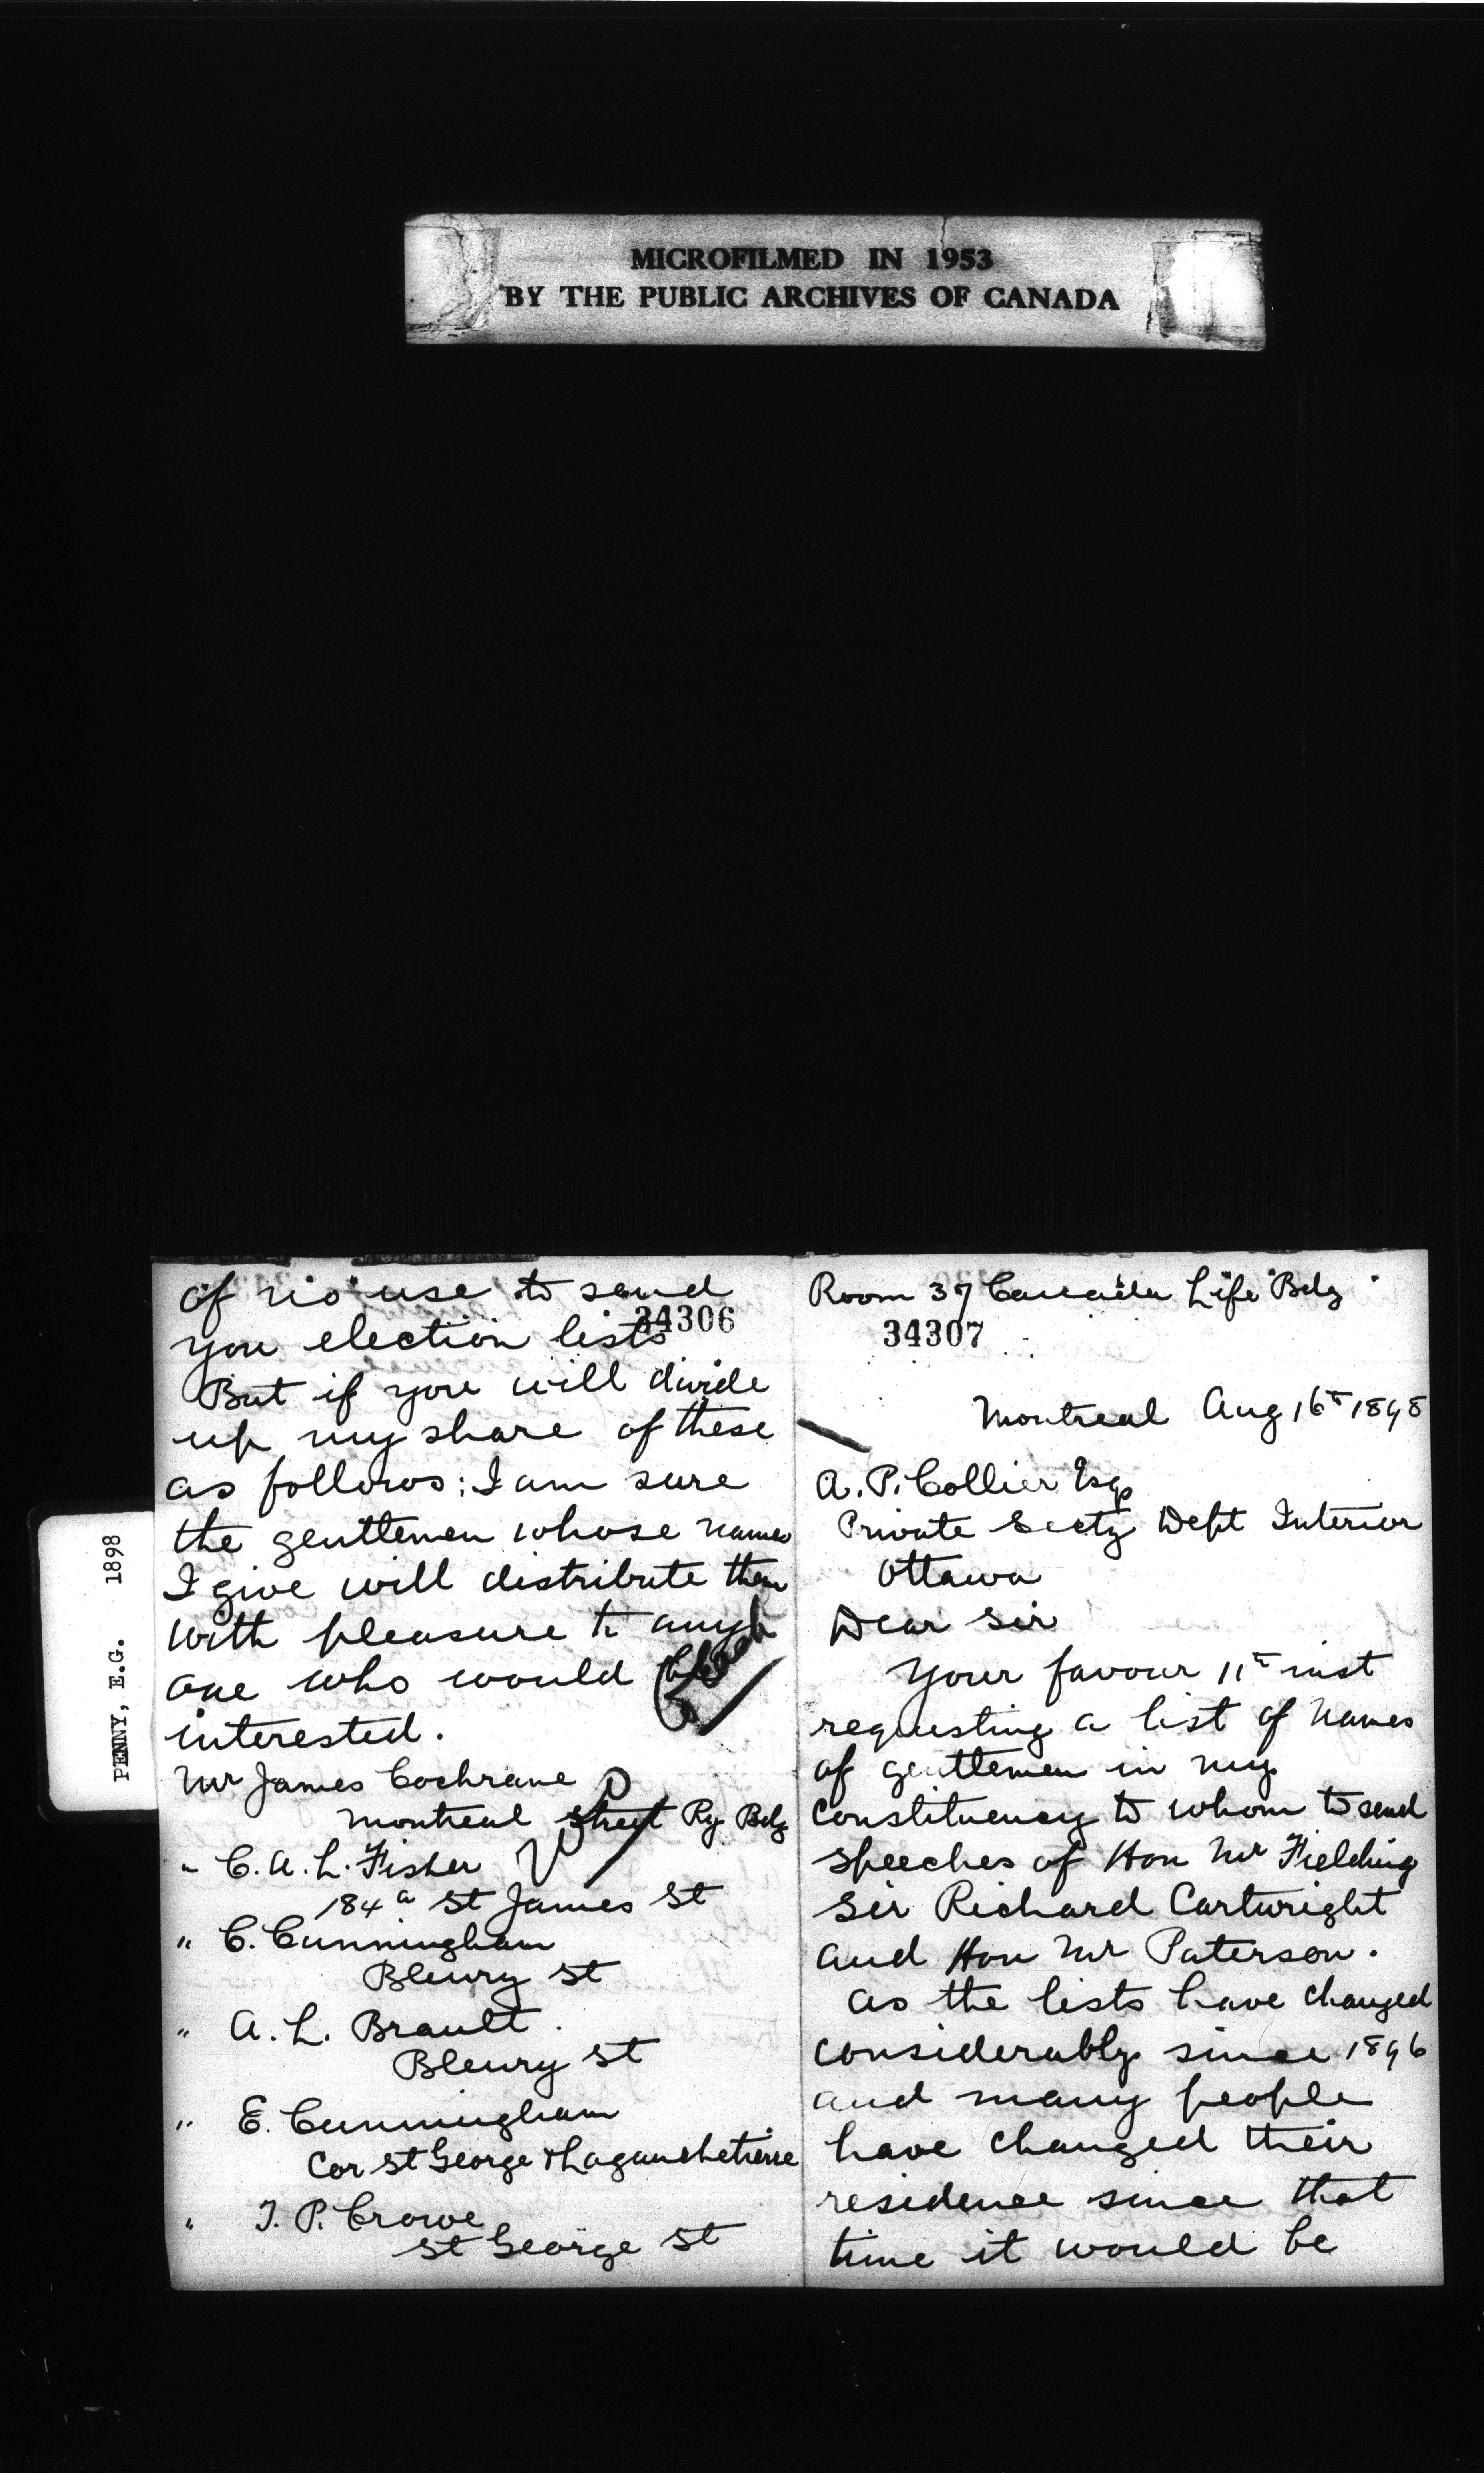 MICROFILMED IN 1953
BY THE PUBLIC ARCHIVES OF CANADA
PENNY, E.G. 1898
of no use to send
34306
you election lists
But if you will divide
up my share of these
as follows: I am sure
the gentlemen whose names
I give will distribute them
with pleasure to any
one who would be
interested.
Mr James Cochrane
Montreal Street Ry Bdg
" C. A. L. Fisher
184a St James St
" C. Cunningham
Bleury St
" A. L. Brault
Bleury St
" E. Cunningham
Cor St George & Lagauchetiere
" T. P. Crowe
St George St
Room 37 Canada Life Bdg
34307
Montreal Aug 16th 1898
A. P. Collier Esq
Private Secty Dept Interior
Ottawa
Dear Sir
Your favour 11th inst
requesting a list of names
of gentlemen in my
constituency to whom to send
speeches of Hon Mr Fielding
Sir Richard Cartwright
and Hon Mr Paterson.
As the lists have changed
considerably since 1896
and many people
have changed their
residence since that
time it would be